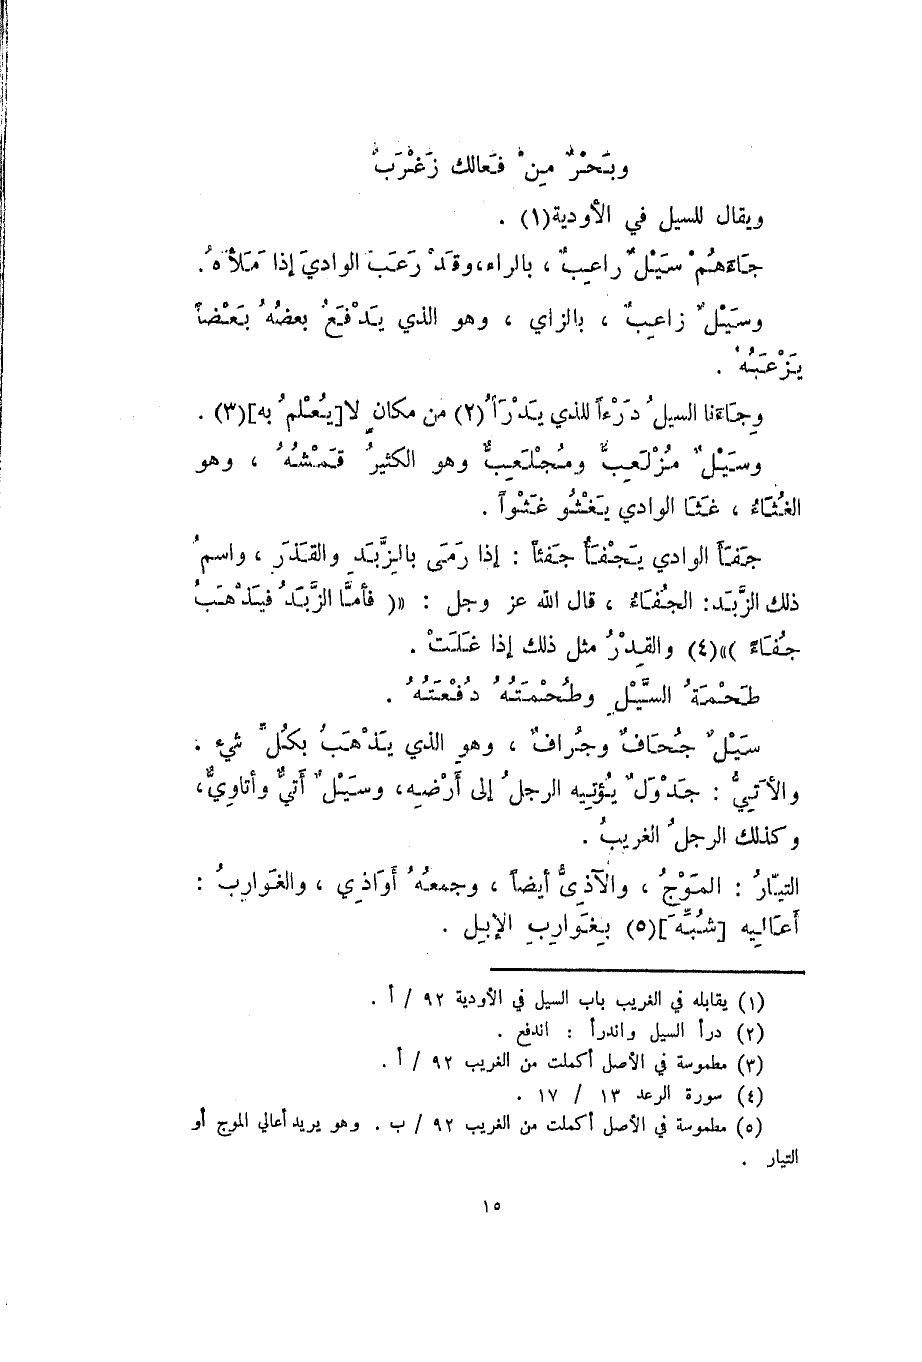 وبَحْرٌ مِنْ فَعالك زَغْرَبُ
ويقال للسيل في الأودية(١) .
جَاءَهُمْ سَيْلٌ راعِبٌ ، بالراء،وقَدْ رَعَبَ الواديَ إذا مَلأَهُ.
وسَيْلٌ زاعِبٌ ، بالزاي ، وهو الذي يَدْفَعُ بعضُهُ بَعْضاً
يَزْعَبُهُ .
وجَاءَنا السيلُ دَرْءاً للذي يَدْرَأُ(٢) من مكانٍ لا[يُعْلمُ به](٣) .
وسَيْلٌ مُزْلَعِبٌّ ومُجْلَعِبٌّ وهو الكثيرُ قَمْشُهُ ، وهو
الغُثَاءُ ، غَثَا الوادي يَغْثُو غَثْواً .
جَفَأَ الوادي يَجْفَأُ جَفْئاً : إذا رَمَى بالزَّبَدِ والقَذَرِ ، واسمُ
ذلك الزَّبَد: الجُفَاءُ ، قال الله عز وجل : «( فأمَّا الزَّبَدُ فيَذْهَبُ
جُفَاءً )»(٤) والقِدْرُ مثل ذلك إذا غَلَتْ .
طَحْمَةُ السَّيْلِ وطُحْمَتُهُ دُفْعَتُهُ .
سَيْلٌ جُحَافٌ وجُرافٌ ، وهو الذي يَذْهَبُ بكُلِّ شيء .
والأَتِيُّ : جَدْوَلٌ يُؤَتِيه الرجلُ إلى أَرْضِه، وسَيْلٌ أَتيٌّ وأتاوِيٌّ،
وكذلك الرجلُ الغريبُ .
التيّارُ : المَوْجُ ، والآذِيُّ أيضاً ، وجمعُهُ أَوَاذِي ، والغَوَارِبُ :
أَعَالِيه [شُبِّهَ](٥) بِغَوَارِبِ الإبِل .
(١) يقابله في الغريب باب السيل في الأودية ٩٢ / أ .
(٢) درأ السيل واندرأ : اندفع .
(٣) مطموسة في الأصل أكملت من الغريب ٩٢ / أ .
(٤) سورة الرعد ١٣ / ١٧ .
(٥) مطموسة في الأصل أكملت من الغريب ٩٢ / ب . وهو يريد أعالي الموج أو
التيار .
١٥